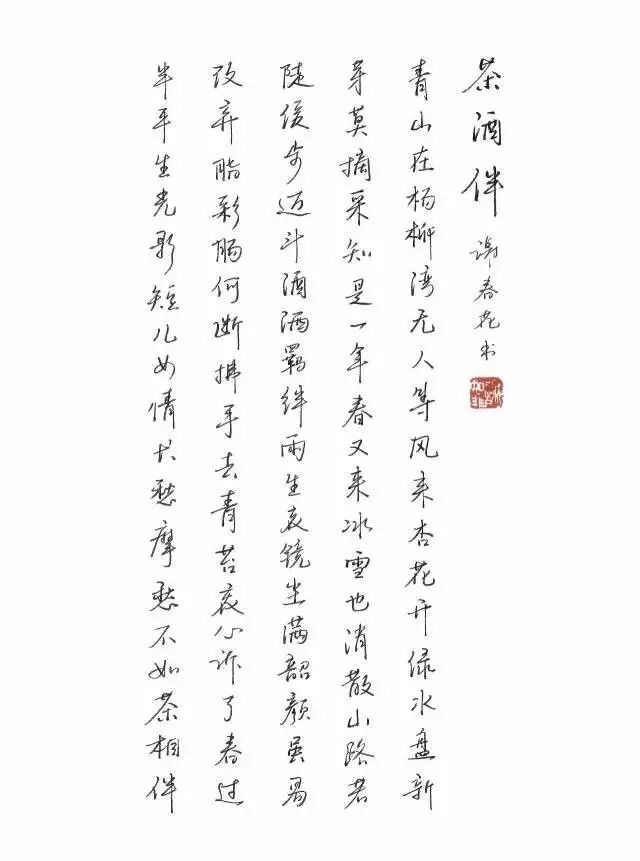 茶酒伴 谢春花书
青山在杨柳湾无人等风来杏花开绿水盘新
芽莫摘采知是一年春又来冰雪也消散山路若
陡缓步迈斗酒洒羁绊雨生哀镜尘满韶颜虽易
改弃脂彩肠何断拂手去青苔哀心诉了春过
半平生光影短儿女情长愁摩愁不如茶相伴